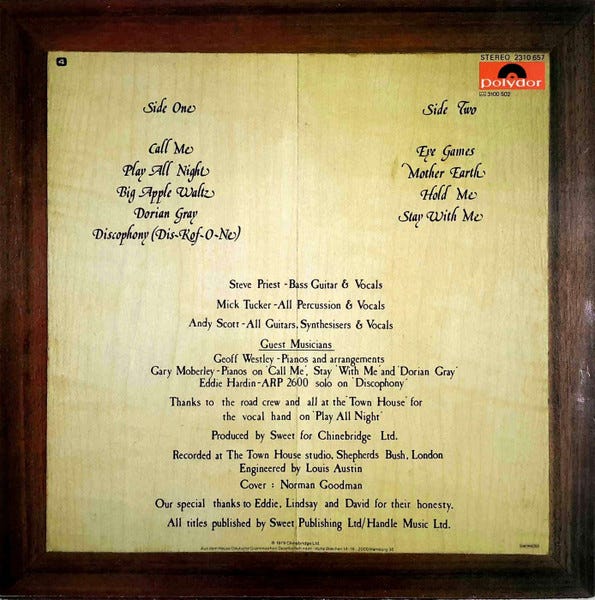 4
STEREO 2310 657
polydor
3100 502
Side One
Call Me
Play All Night
Big Apple Waltz
Dorian Gray
Discophony (Dis-Kof-O-Ne)
Side Two
Eye Games
'Mother Earth
Hold Me
Stay With Me
Steve Priest - Bass Guitar & Vocals
Mick Tucker - All Percussion & Vocals
Andy Scott - All Guitars, Synthesisers & Vocals
Guest Musicians
Geoff Westley - Pianos and arrangements
Gary Moberley - Pianos on 'Call Me', Stay 'With Me' and 'Dorian Gray'
Eddie Hardin - ARP 2600 solo on 'Discophony'
Thanks to the road crew and all at the 'Town House' for
the vocal hand on 'Play All Night'
Produced by Sweet for Chinebridge Ltd.
Recorded at The Town House studio, Shepherds Bush, London
Engineered by Louis Austin
Cover : Norman Goodman
Our special thanks to Eddie, Lindsay and David for their honesty.
All titles published by Sweet Publishing Ltd/Handle Music Ltd.
℗ 1979 Chinebridge Ltd.